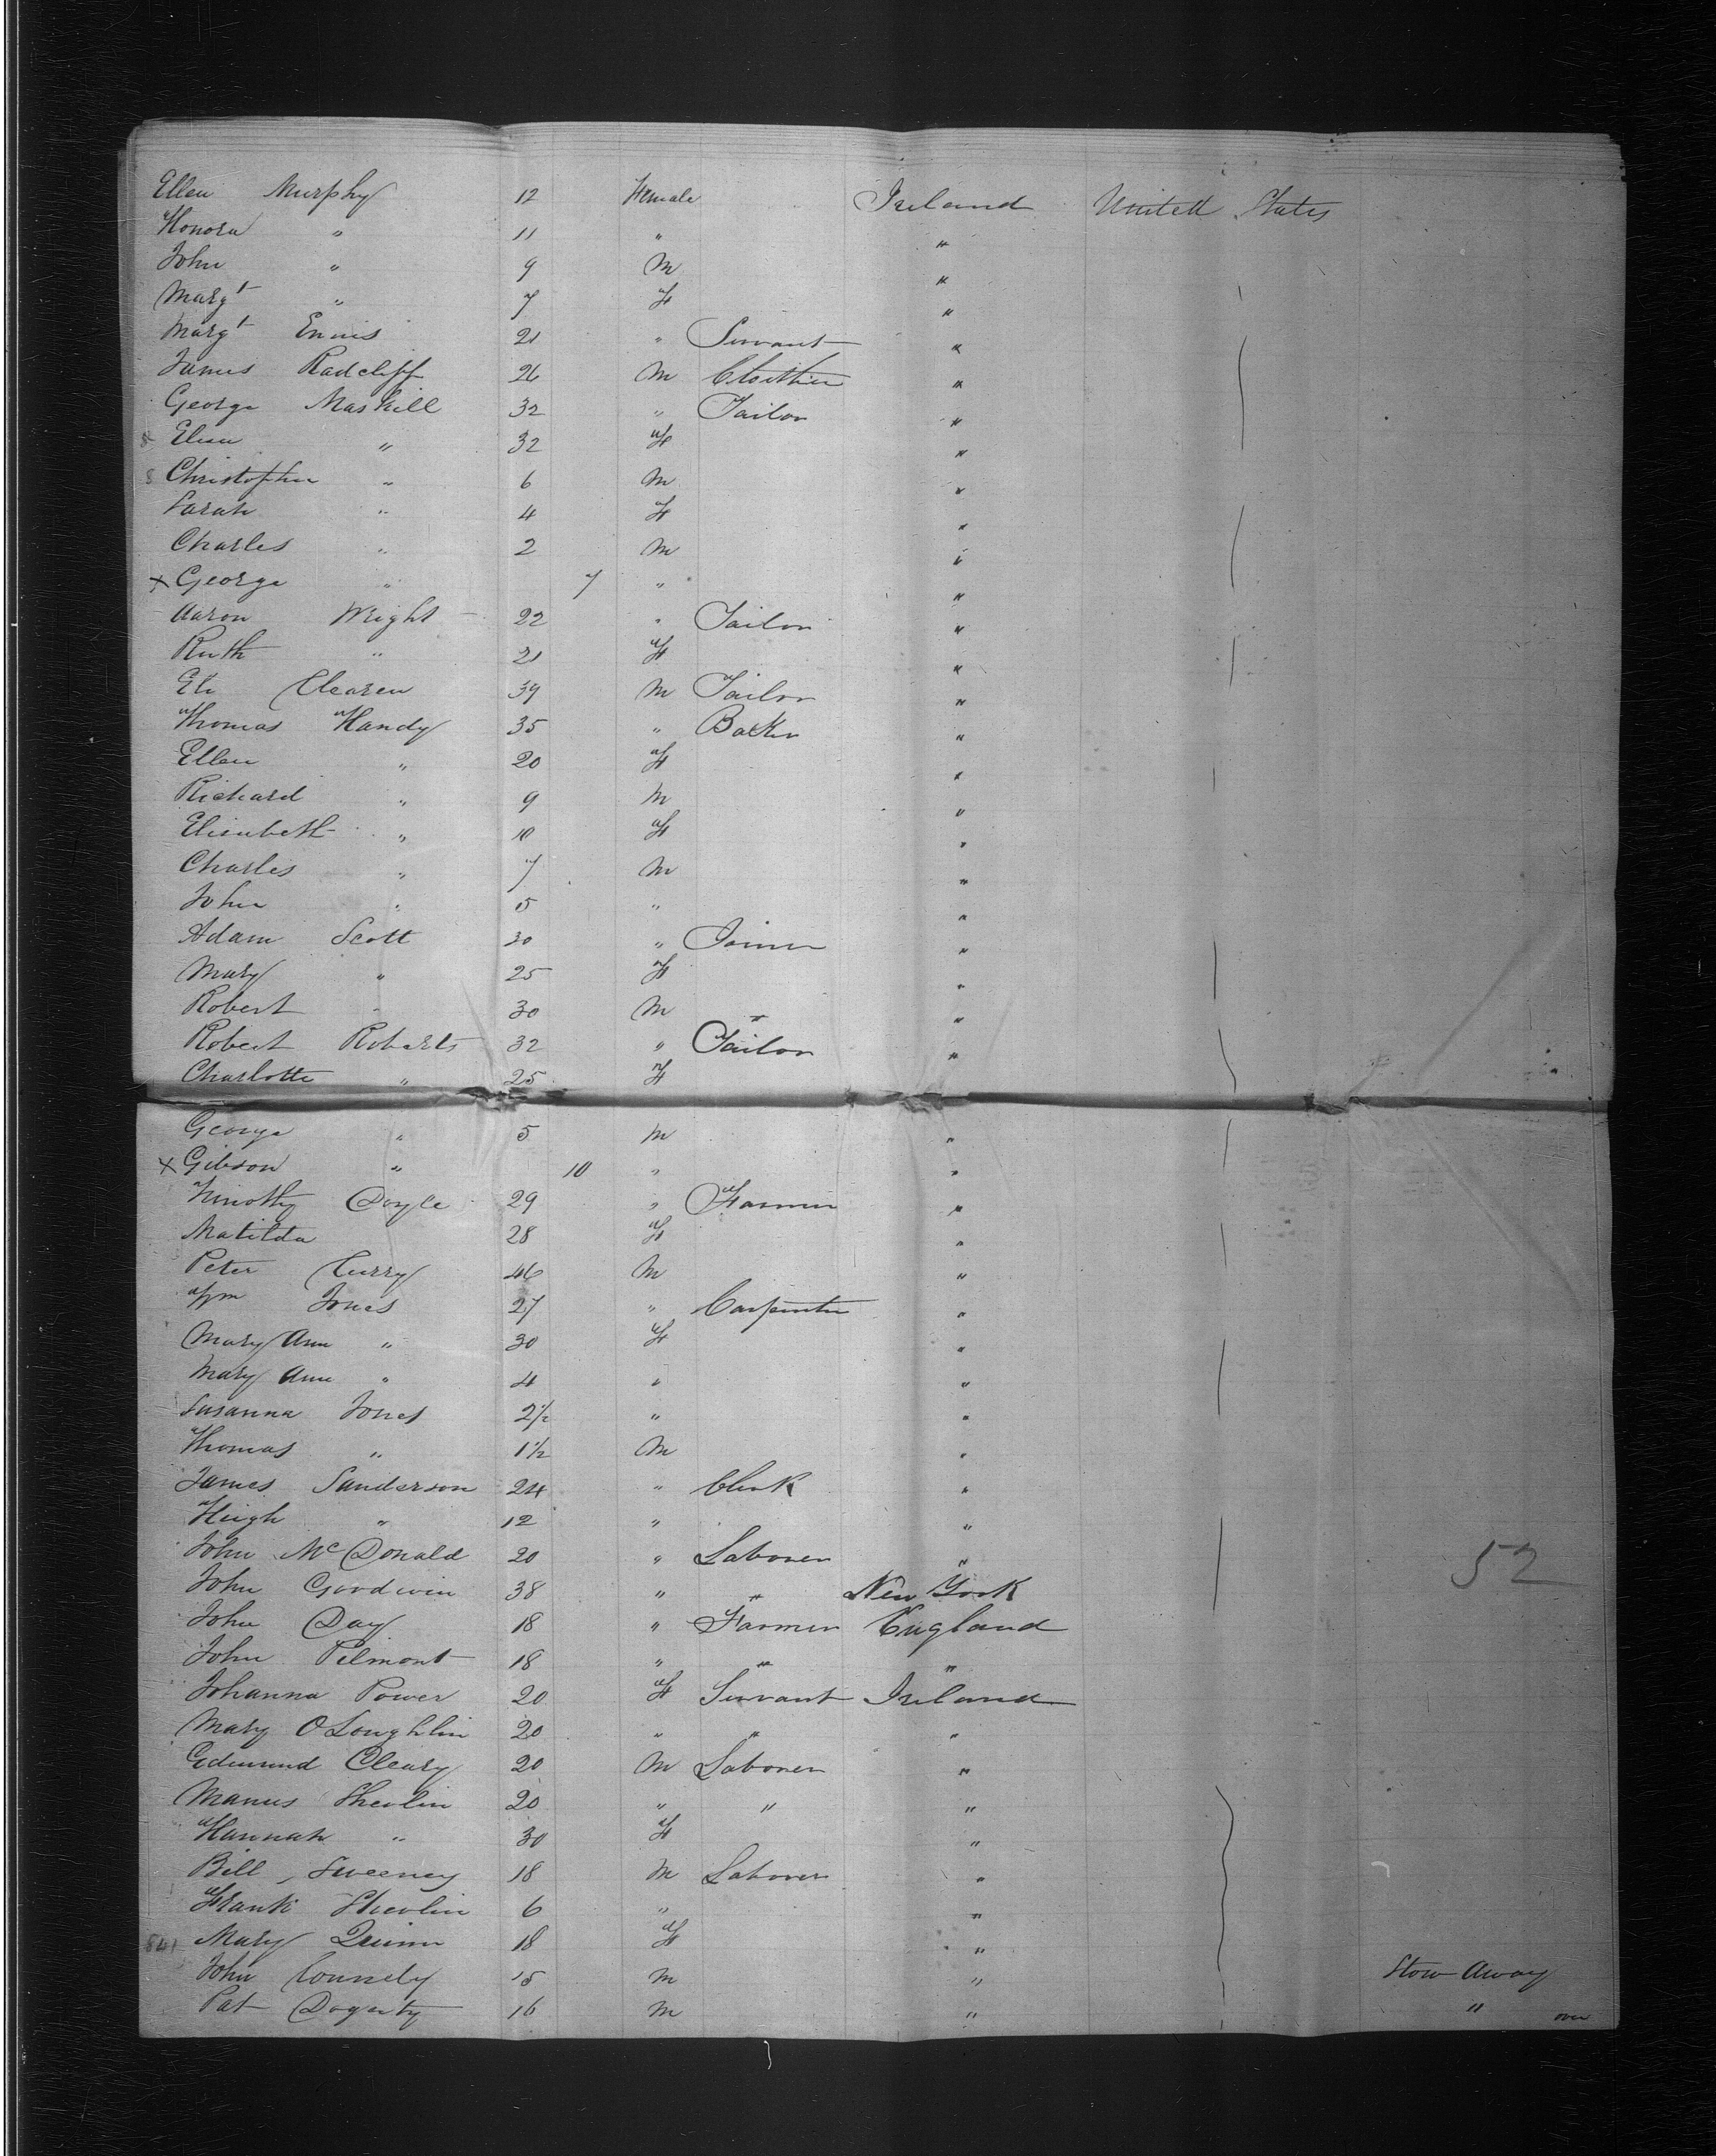 Ellen Murphy 12 Female Ireland United States
Honora " 11 " "
John " 9 M "
Margt " 7 F "
Margt Ennis 21 " Servant "
James Radcliff 26 M Clothier "
George Maskill 32 " Tailor "
Eliza " 32 F "
8 Christopher " 6 M "
Sarah " 4 F "
Charles " 2 M "
x George " 7 " "
Aaron Wright 22 " Tailor "
Ruth " 21 F "
Eli Clearen 39 M Tailor "
Thomas Handy 35 " Baker "
Ellen " 20 F "
Richard " 9 M "
Elizabeth " 10 F "
Charles " 7 M "
John " 5 " "
Adam Scott 30 " Joiner "
Mary " 25 F "
Robert " 30 M " "
Robert Roberts 32 " Tailor "
Charlotte " 25 F
George " 5 M "
x Gibson " 10 " "
Timothy Doyle 29 " Farmer "
Matilda 28 F "
Peter Curry 46 M "
Wm Jones 27 " Carpenter "
Mary Ann " 30 F "
Mary Ann " 4 " "
Susanna Jones 2½ " "
Thomas " 1½ M "
James Sanderson 24 " Clerk "
Hugh " 12 " "
John McDonald 20 " Laborer "
52
John Goodwin 38 " " New York
John Day 18 " Farmer England
John Pilmont 18 " " "
Johanna Power 20 F Servant Ireland
Mary O Loughlin 20 " " "
Edmund Cleary 20 M Laborer "
Manus Shevlin 20 " " "
Hannah " 30 F "
Bill Sweeney 18 M Laborer "
Frank Shevlin 6 " "
841 Mary Quinn 18 F "
John Connely 15 M " Stow Away
Pat Dogerty 16 M " " over